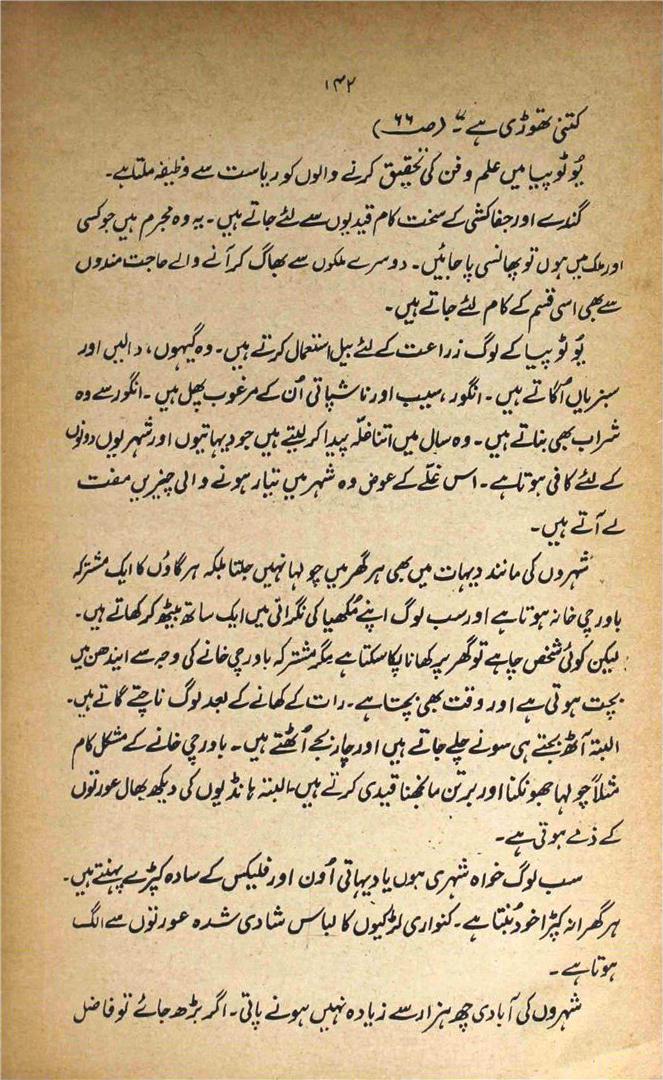 ۱۴۲
کتنی تھوڑی ہے"۔ (صـ ۶۶)
یُوٹوپیا میں علم و فن کی تحقیق کرنے والوں کو ریاست سے وظیفہ ملتا ہے۔
گندے اور جفاکشی کے سخت کام قیدیوں سے لئے جاتے ہیں۔ یہ وہ مجرم ہیں جو کسی
اور ملک میں ہوں تو پھانسی پا جائیں۔ دوسرے ملکوں سے بھاگ کر آنے والے حاجت مندوں
سے بھی اسی قسم کے کام لئے جاتے ہیں۔
یُوٹوپیا کے لوگ زراعت کے لئے بیل استعمال کرتے ہیں۔ وہ گیہوں، دالیں اور
سبزیاں اُگاتے ہیں۔ انگور، سیب اور ناشپاتی اُن کے مرغوب پھل ہیں۔ انگور سے وہ
شراب بھی بناتے ہیں۔ وہ سال میں اتنا غلّہ پیدا کر لیتے ہیں جو دیہاتیوں اور شہریوں دونوں
کے لئے کافی ہوتا ہے۔ اس غلّے کے عوض وہ شہر میں تیار ہونے والی چیزیں مفت
لے آتے ہیں۔
شہروں کی مانند دیہات میں بھی ہر گھر میں چولہا نہیں جلتا بلکہ ہر گاؤں کا ایک مشترکہ
باورچی خانہ ہوتا ہے اور سب لوگ اپنے مُکھیا کی نگرانی میں ایک ساتھ بیٹھ کر کھاتے ہیں۔
لیکن کوئی شخص چاہے تو گھر پر کھانا پکا سکتا ہے مگر مشترکہ باورچی خانے کی وجہ سے ایندھن میں
بچت ہوتی ہے اور وقت بھی بچتا ہے۔ رات کے کھانے کے بعد لوگ ناچتے گاتے ہیں۔
البتہ آٹھ بجتے ہی سونے چلے جاتے ہیں اور چار بجے اُٹھتے ہیں۔ باورچی خانے کے مشکل کام
مثلاً چولہا جھونکنا اور برتن مانجھنا قیدی کرتے ہیں۔ البتہ ہانڈیوں کی دیکھ بھال عورتوں
کے ذمے ہوتی ہے۔
سب لوگ خواہ شہری ہوں یا دیہاتی اُون اور فلیکس کے سادہ کپڑے پہنتے ہیں۔
ہر گھرانہ کپڑا خود بُنتا ہے۔ کنواری لڑکیوں کا لباس شادی شدہ عورتوں سے الگ
ہوتا ہے۔
شہروں کی آبادی چھ ہزار سے زیادہ نہیں ہونے پاتی۔ اگر بڑھ جائے تو فاضل